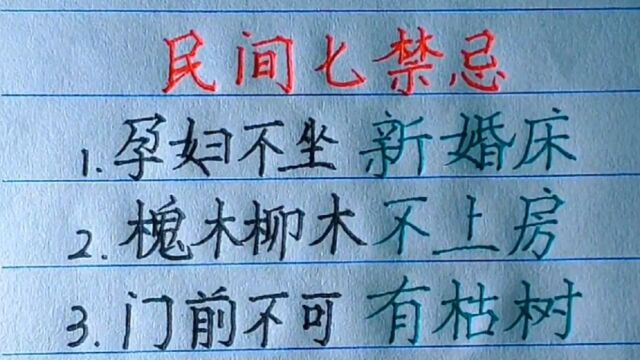 民间七禁忌
1.孕妇不坐新婚床
2.槐木柳木不上房
3.门前不可有枯树